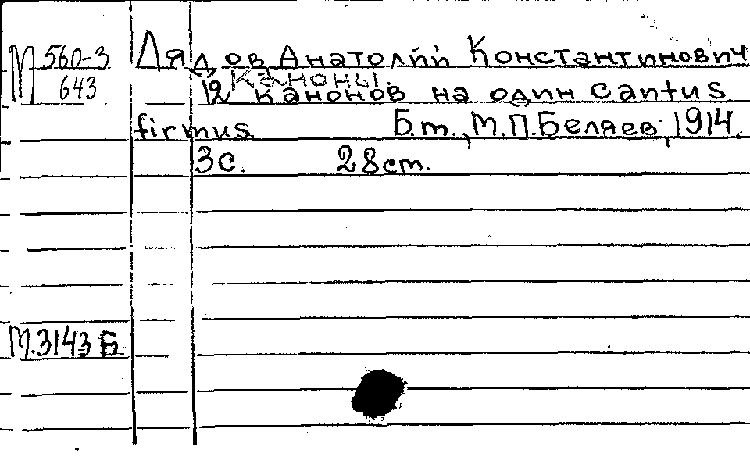 М 560-3
643
Лядов Анатолий Константинович
Каноны.
12 канонов на один cantus
firmus. Б.т., М.П.Беляев, 1914.
3с. 28cm.
М.3143 Б